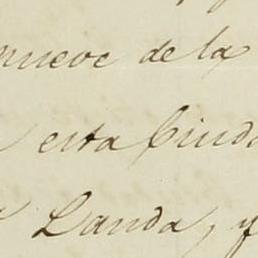 nueve de la
esta Ciuda
Landa, y